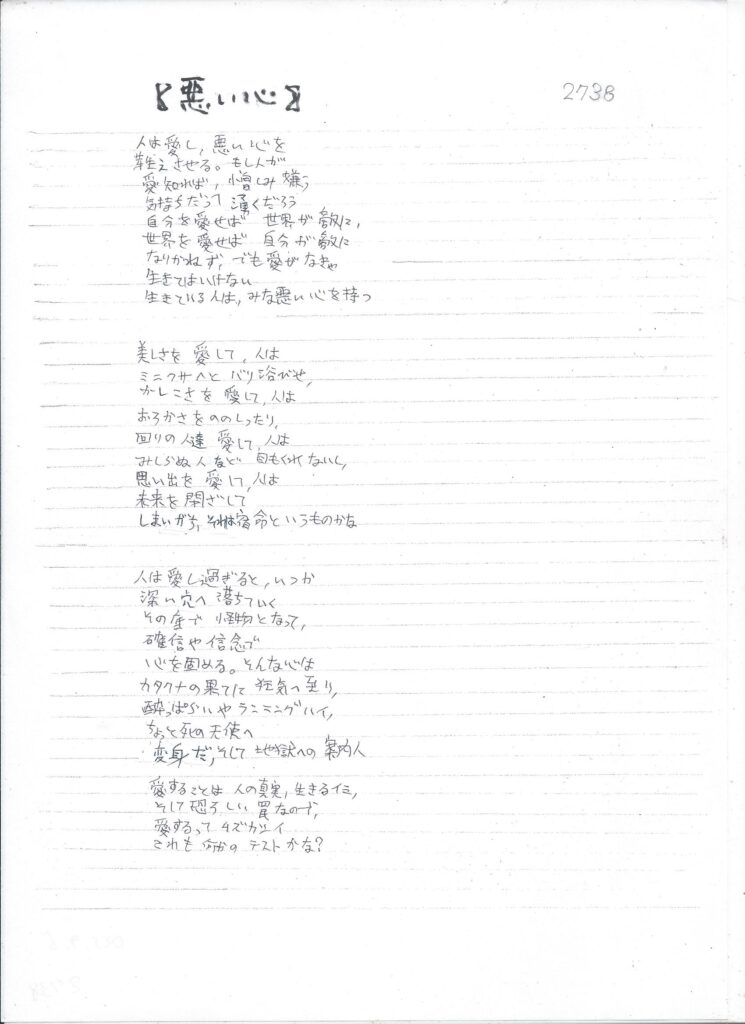 【悪い心】
2738
人は愛し、悪い心を
芽生えさせる。もし人が
愛知れば、憎しみ嫌う
気持ちだって 湧くだろう
自分を愛せば 世界が敵に、
世界を愛せば 自分が敵に
なりかねず、でも愛がなきゃ
生きてはいけない
生きている人は、みな悪い心を持つ
美しさを 愛して、人は
ミニクサヘと バリ浴びせ、
カシコさを 愛して、人は
おろかさをののしったり、
回りの人達 愛して、人は
みしらぬ人など 目もくれないし、
思い出を 愛して、人は
未来を閉ざして
しまいがち、それは宿命というものかな
人は愛し過ぎると、いつか
深い穴へ 落ちていく
その底で 怪物となって、
確信や信念で
心を固める。そんな心は
カタクナの果てに 狂気へ至り、
酔っぱらいやランニングハイ、
ちょっと死の天使へ
変身だ、そして地獄への案内人
愛することは 人の真実、生きるイミ、
そして恐ろしい 罠なので、
愛するって ムズカシイ
これも 何かの テストかな?